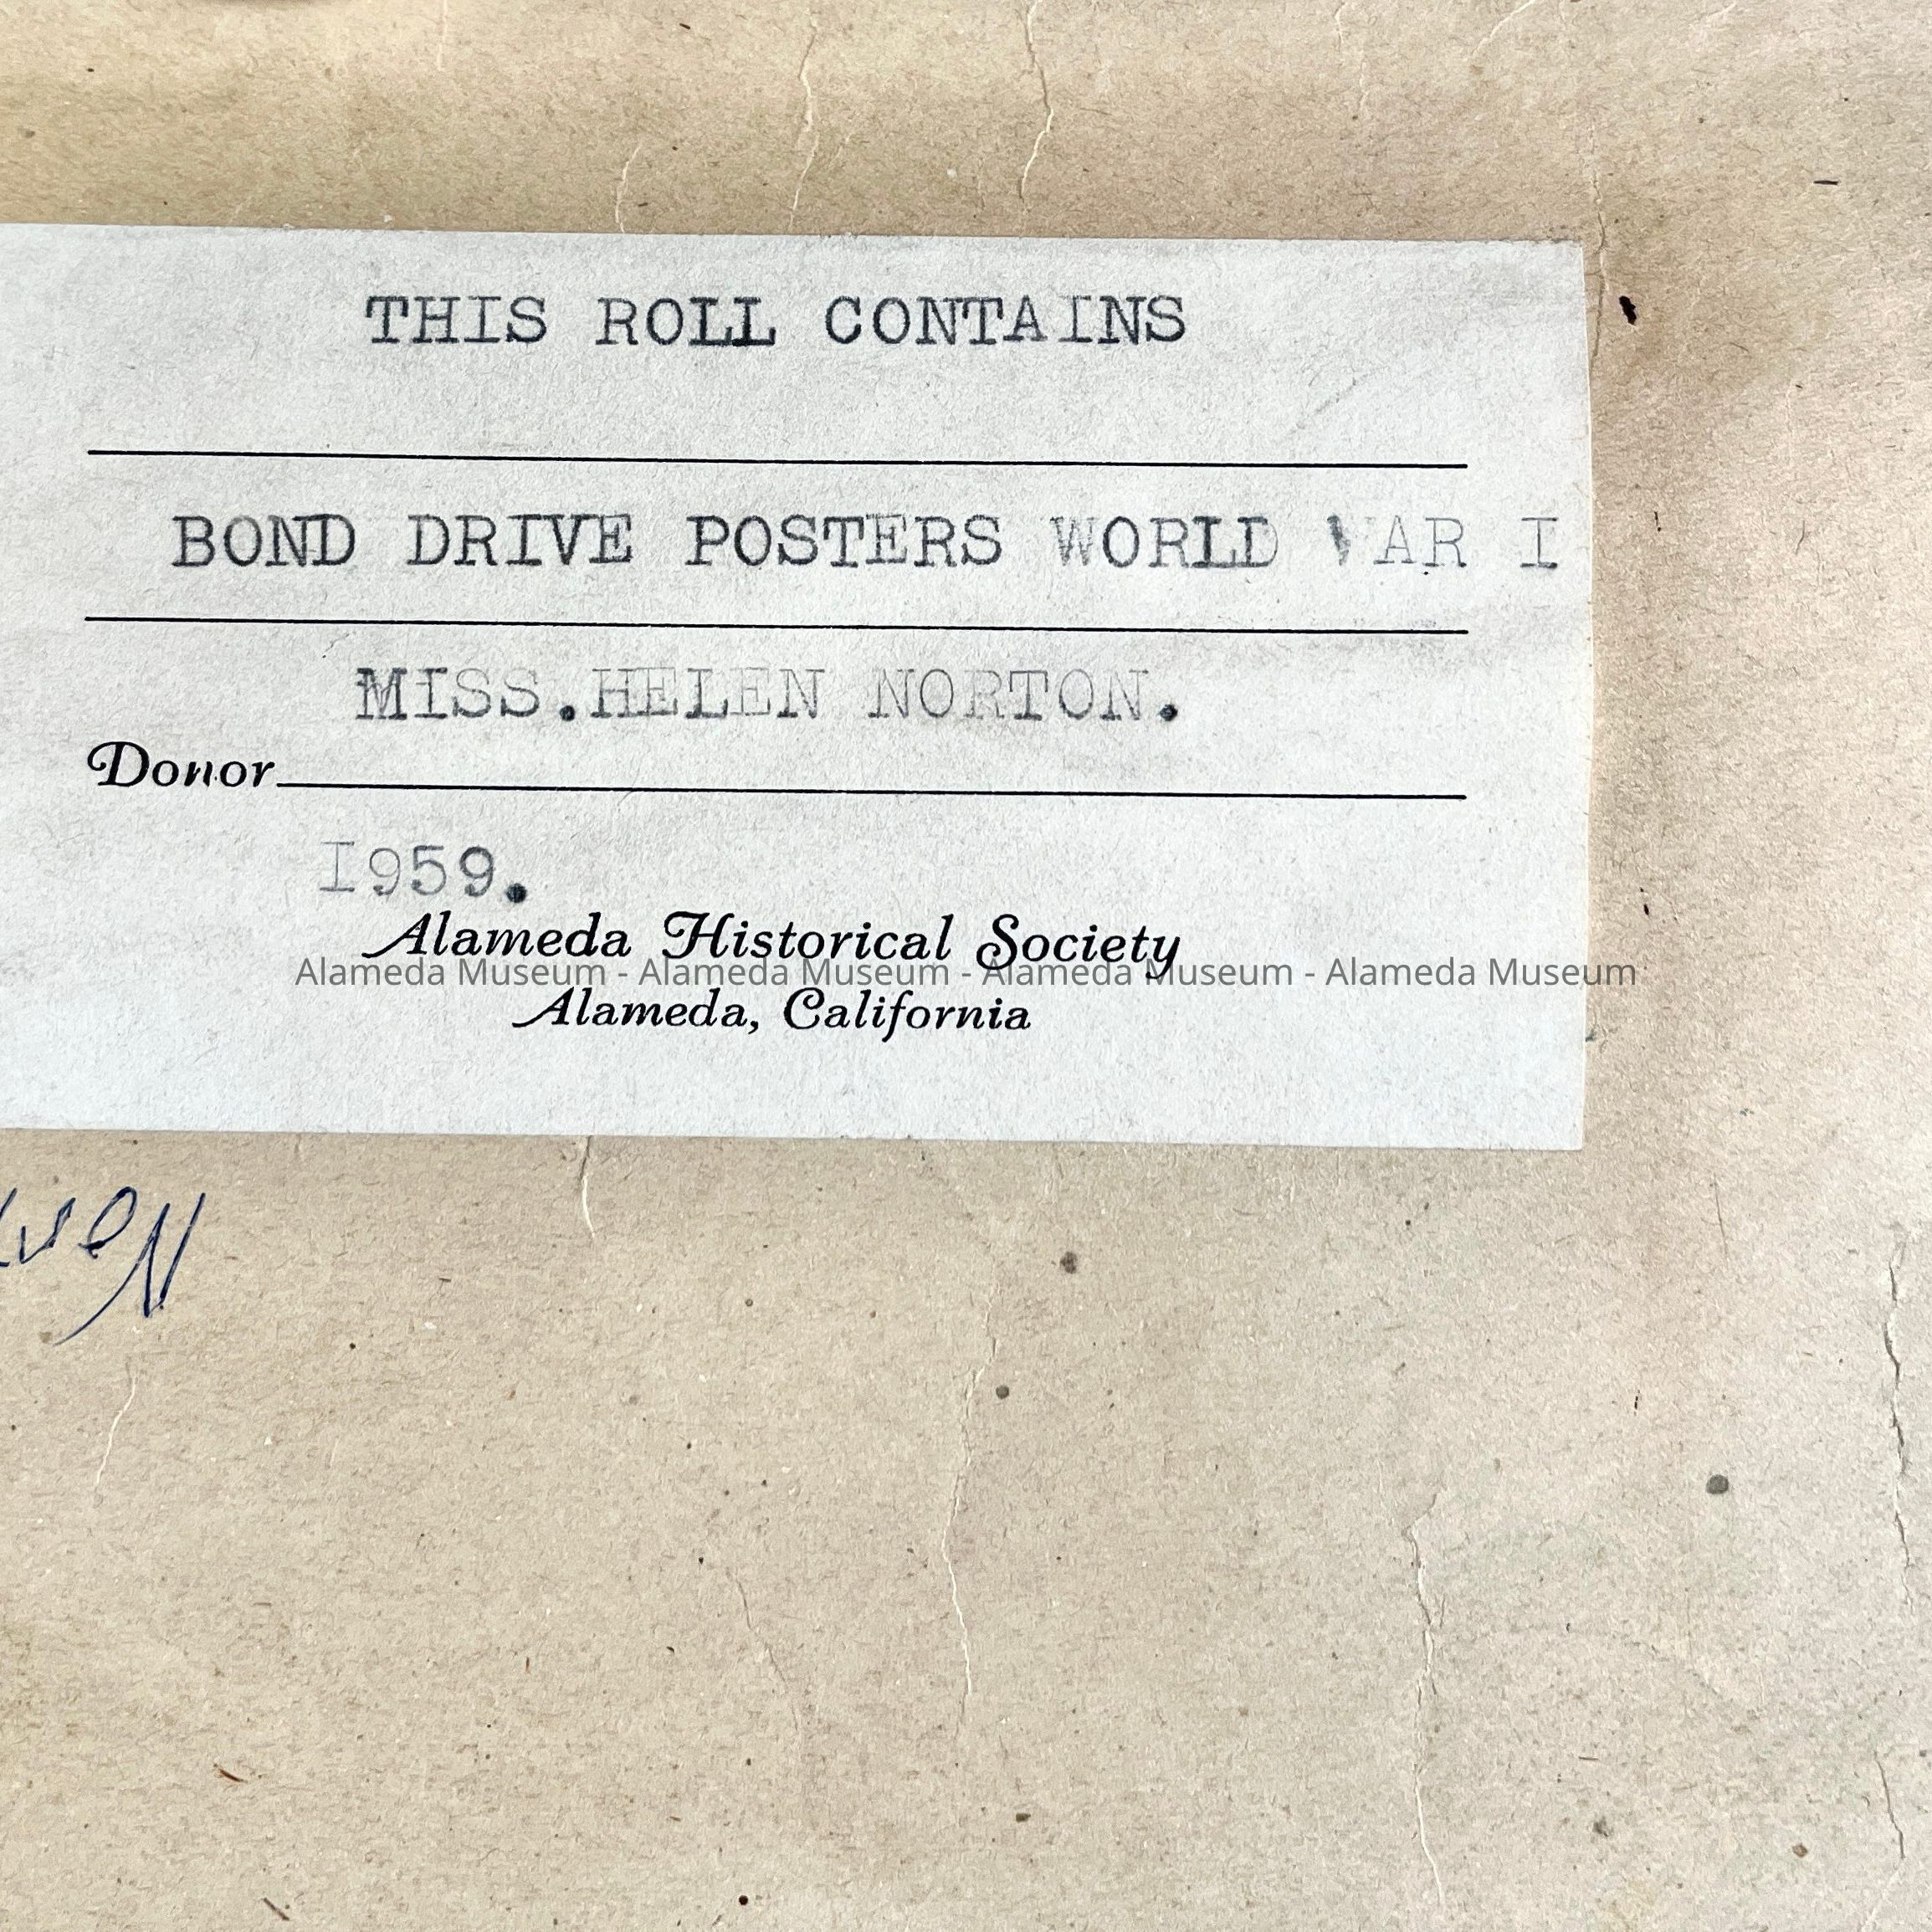 THIS ROLL CONTAINS
BOND DRIVE POSTERS WORLD WAR I
MISS.HELEN NORTON.
Donor
I959.
Alameda Historical Society
Alameda Museum - Alameda Museum - Alameda Museum - Alameda Museum
Alameda, California